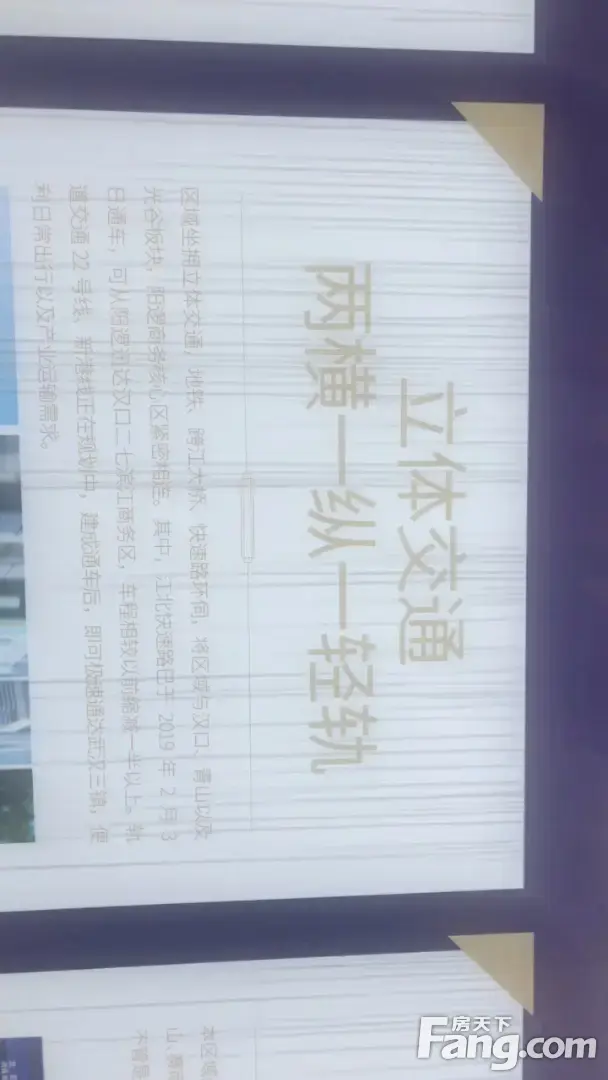 立体交通
两横一纵一轻轨
区域坐拥立体交通，地铁、跨江大桥、快速路环伺，将区域与汉口、青山以及
光谷板块，阳逻商务核心区紧密相连。其中，江北快速路已于 2019 年 2 月 3
日通车，可从阳逻润达汉口二七滨江商务区，车程相较以前缩减一半以上。轨
道交通 22 号线、新港线正在规划中，建成通车后，即可极速通达武汉三镇，便
利日常出行以及产业运输需求。
本区域
山，
不管是
房天下
Fang.com